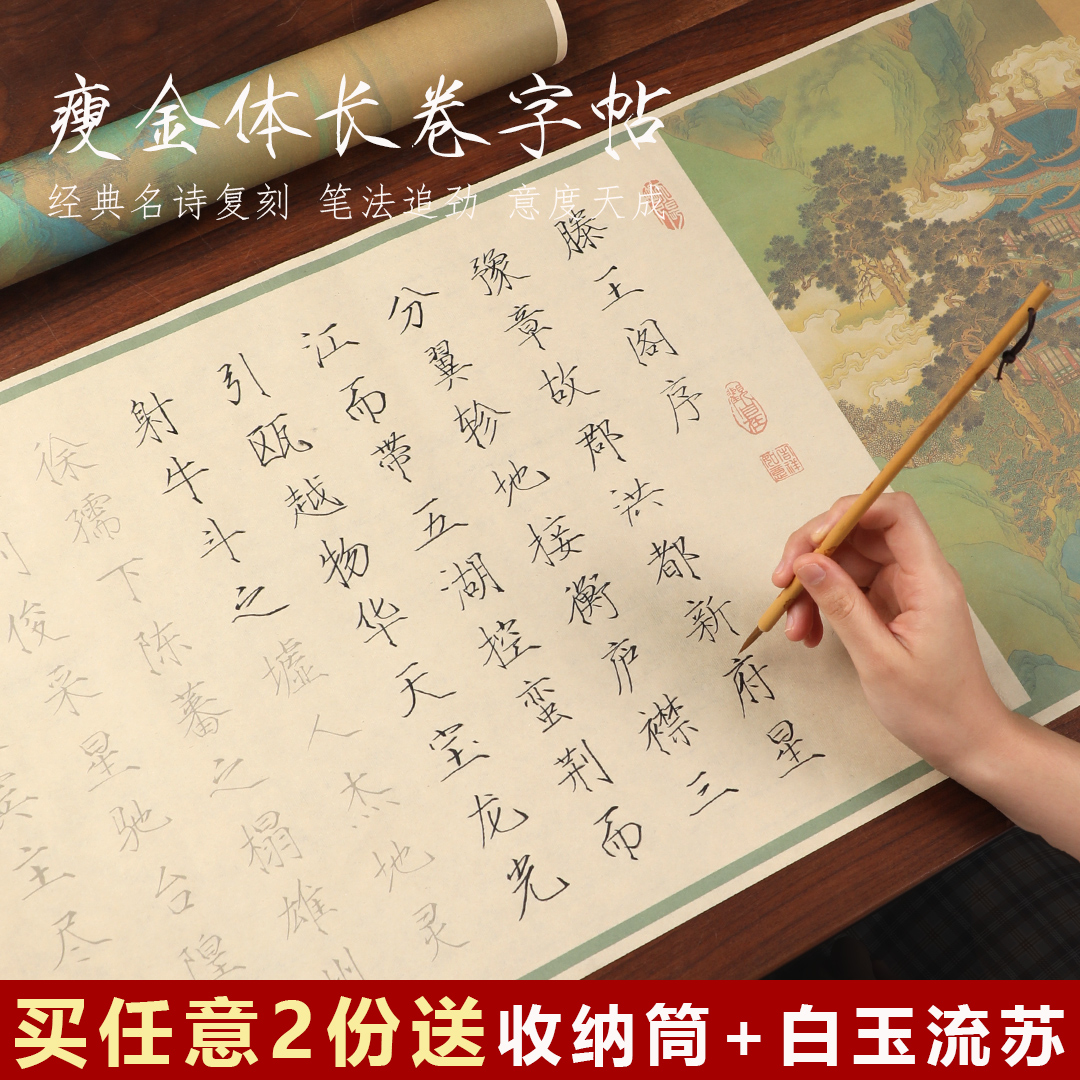 瘦金体长卷字帖
经典名诗复刻 笔法追劲 意度天成
滕王阁序
豫章故郡洪都新府星
分翼轸地接衡庐襟三
江而带五湖控蛮荆而
引瓯越物华天宝龙光
射牛斗之墟人杰地灵
徐孺下陈蕃之榻雄州
俊采星驰台隍
主尽
买任意2份送收纳筒+白玉流苏